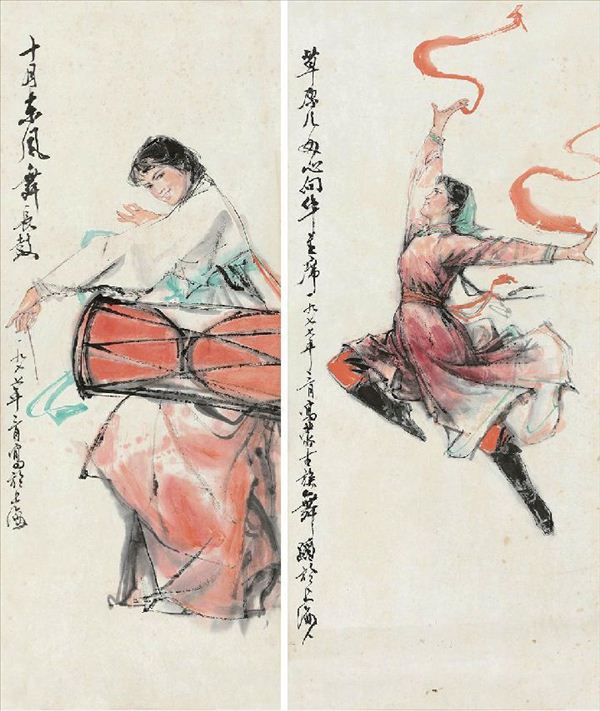 十月东風舞長鼓
一九七七年二月寫於上海
草原儿女心向华主席一九七七年二月寫蒙古族舞蹈於上海